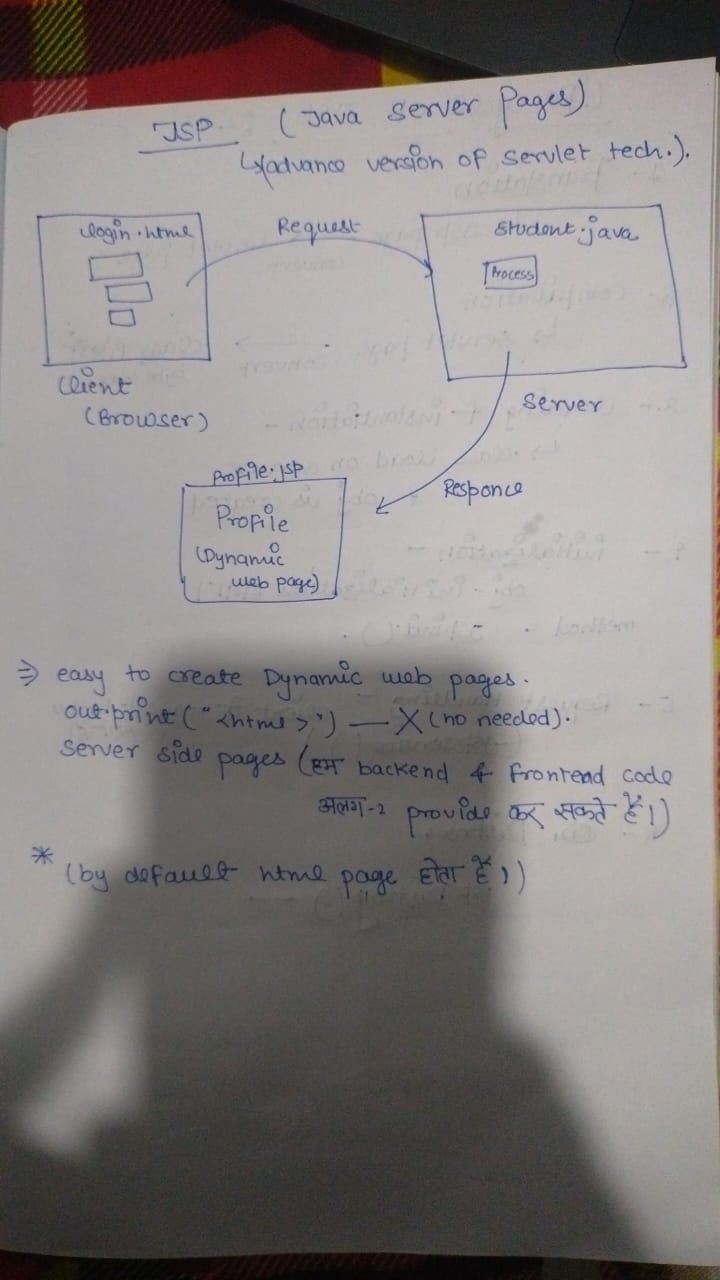 JSP (Java Server Pages)
↳(advance version of servlet tech.).
login.html
Request
Student.java
Process
Client
(Browser)
Server
Profile.jsp
Responce
Profile
(Dynamic
web page)
⇒ easy to create Dynamic web pages.
out.print("<html>") — X (no needed).
Server side pages (हम backend & frontend code
अलग-2 provide कर सकते हैं।)
* (by default html page होता हैं।)